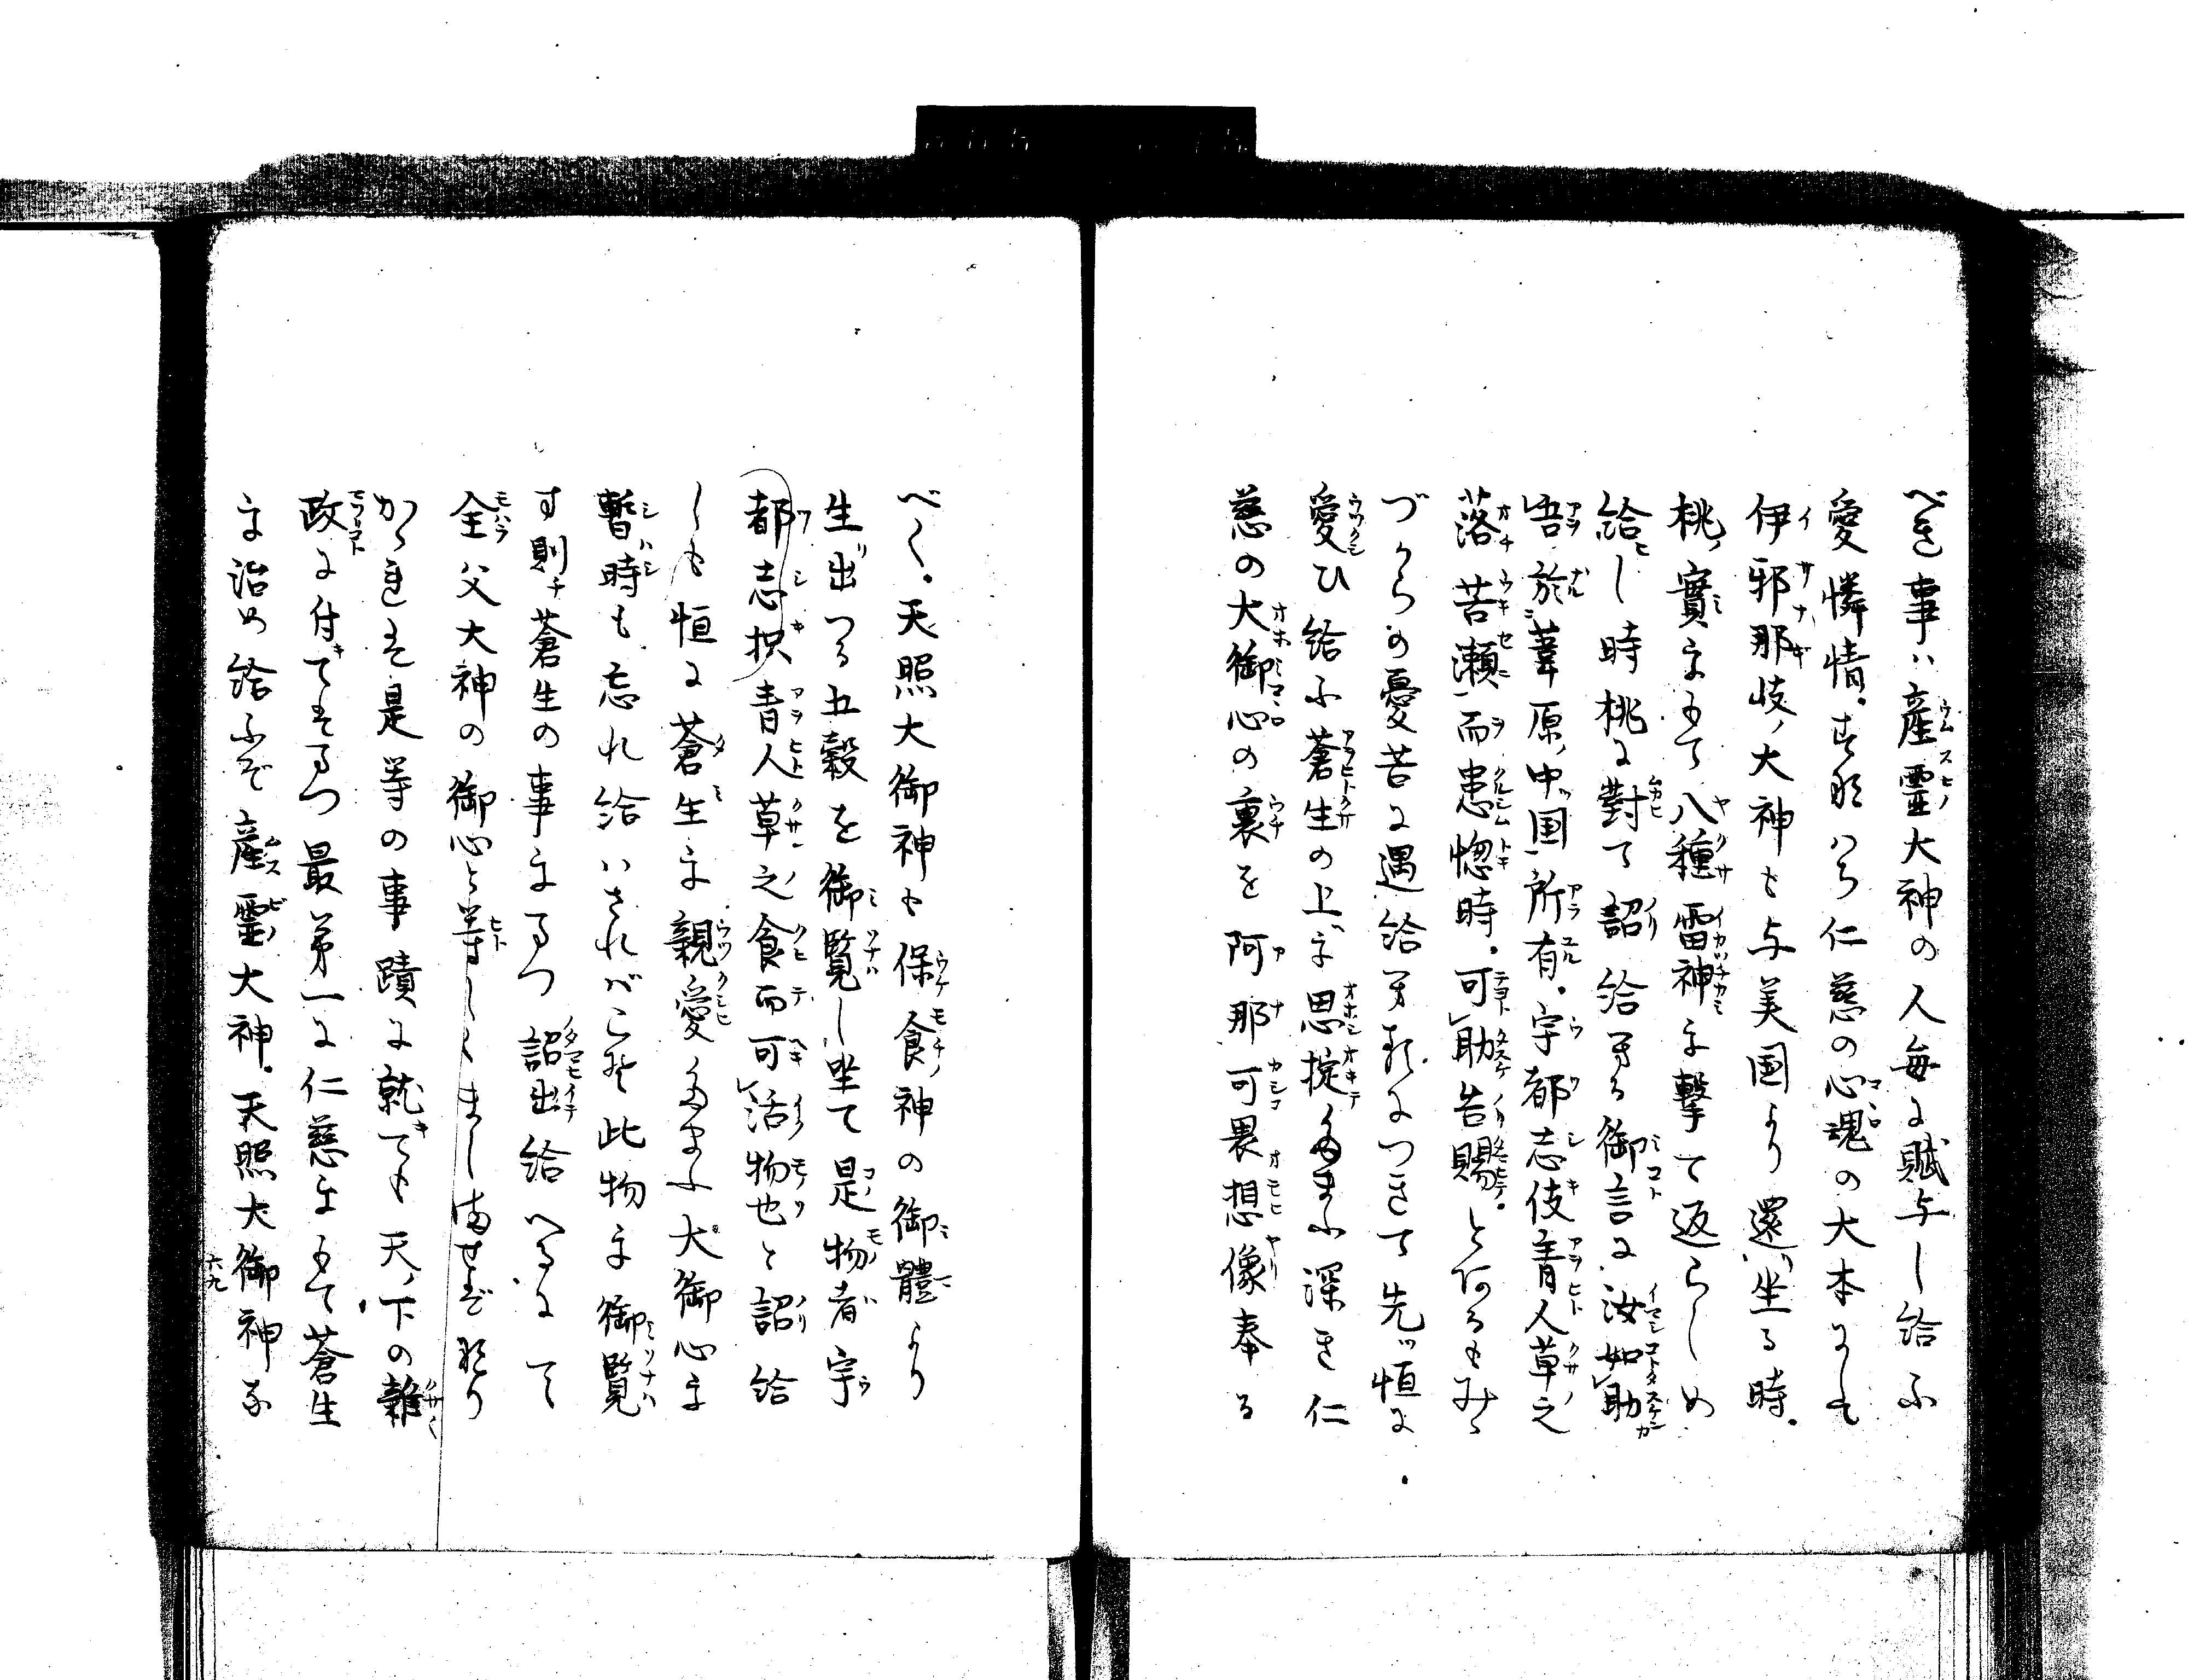 べき事ハ産霊大神の人毎に賦与し給ふ
愛憐情。すなハち仁慈の心魂の大本にして
伊邪那岐ノ大神も与美国より還リ坐る時。
桃ノ實をもて八種雷神を撃て返らしめ
給ヒし時桃に對て詔給へる御言に汝如助
吾於葦原ノ中ツ国所有。宇都志伎青人草之
落苦瀬而患惚時。可助告賜。とあるもみ
づからの憂苦に遇給へるにつきて先ツ恒に
愛ひ給ふ蒼生の上を思掟たまふ深き仁
慈の大御心の裏を阿那可畏想像奉る
べく。天照大御神も保食神の御體より
生リ出つる五穀を御覧し坐て是物者宇
都志枳青人草之食而可活物也と詔給
しも恒に蒼生を親愛たまふ大御心を
暫時も忘れ給ハされバこそ此物を御覧
す則チ蒼生の事をまつ詔出給へるにて
全父大神の御心と等しくましませバなり
かゝれは是等の事蹟に就キても天ノ下の雜
政に付キてはまつ最第一に仁慈をもて蒼生
を治め給ふぞ産霊大神。天照大御神な
六九